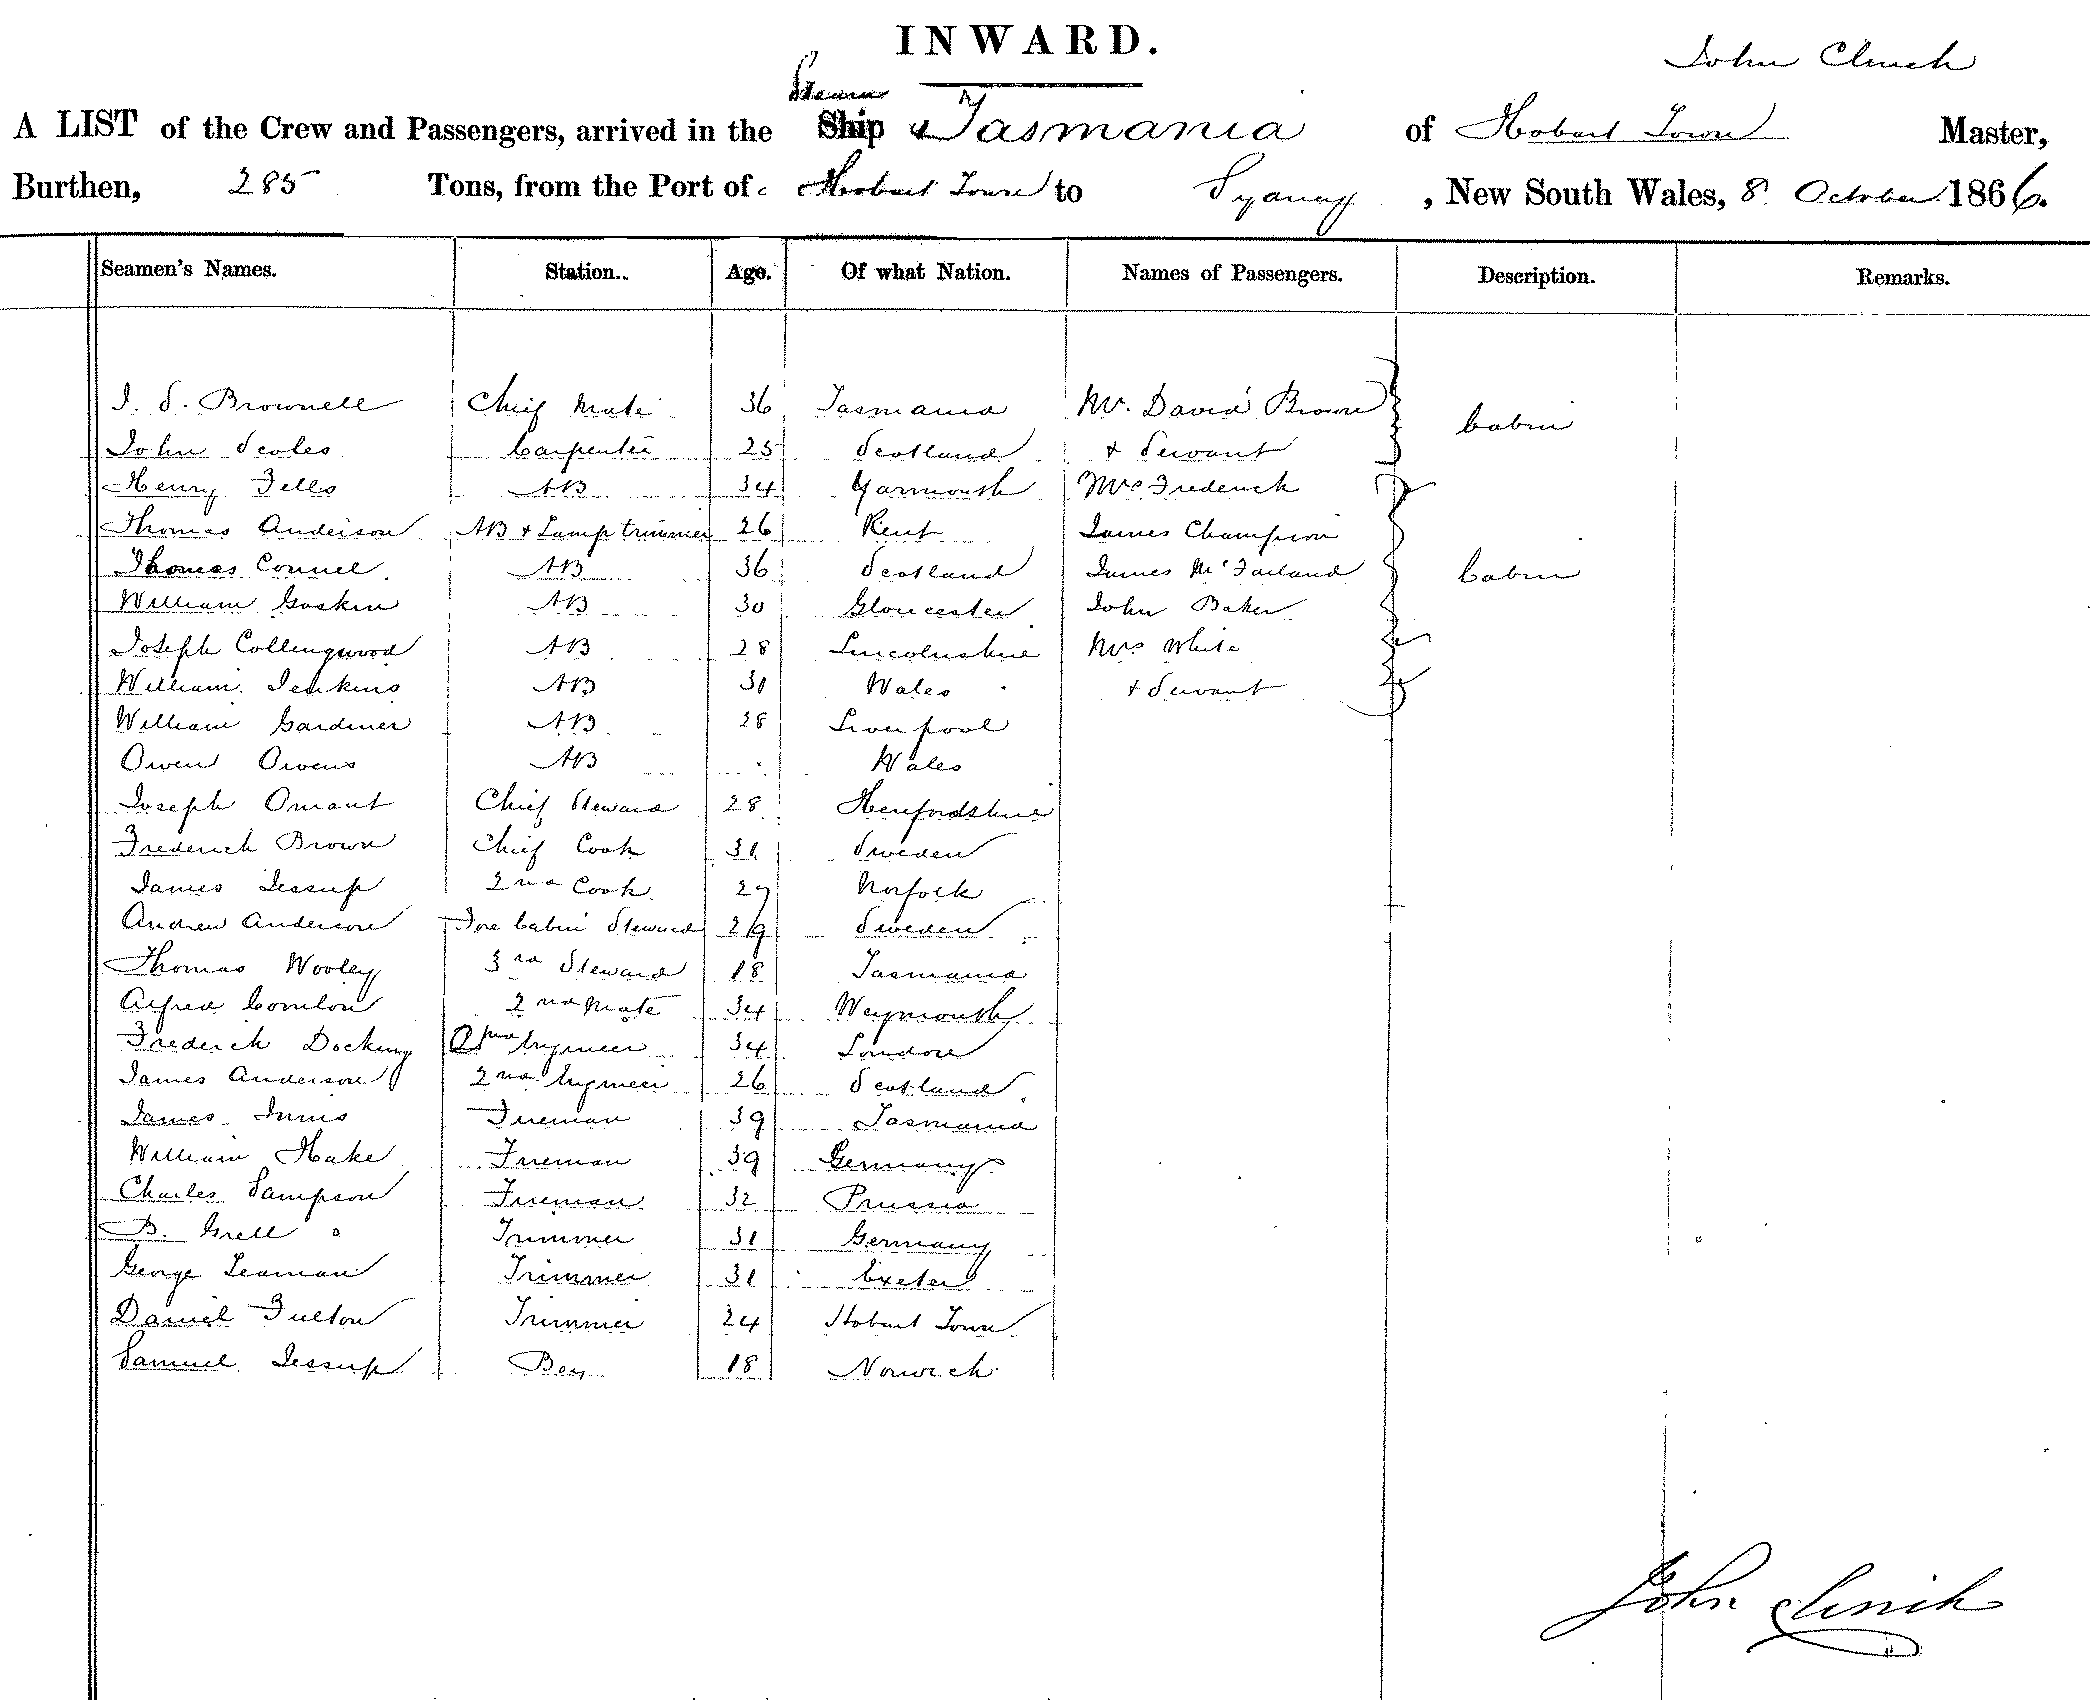 INWARD.
John Clinch
Steam
A LIST of the Crew and Passengers, arrived in the Ship Tasmania of Hobart Town Master,
Burthen, 285 Tons, from the Port of Hobart Town to Sydney, New South Wales, 8 October 1866.
Seamen's Names. Station. Age. Of what Nation. Names of Passengers. Description. Remarks.
J. S. Brownell Chief Mate 36 Tasmania Mr. David Brown Cabin
John Scoles Carpenter 25 Scotland + Servant
Henry Fells AB 34 Yarmouth Mrs Frederick
Thomas Anderson AB + Lamp trimmer 26 Kent James Champion
Thomas Connel AB 36 Scotland James McFarland Cabin
William Gaskin AB 30 Gloucester John Baker
Joseph Collingwood AB 28 Lincolnshire Mrs White
William Jenkins AB 31 Wales + Servant
William Gardiner AB 28 Liverpool
Owen Owens AB Wales
Joseph Omant Chief Steward 28 Herefordshire
Frederick Brown Chief Cook 31 Sweden
James Jessup 2nd Cook 27 Norfolk
Andrew Anderson Fore Cabin Steward 29 Sweden
Thomas Wooley 3rd Steward 18 Tasmania
Alfred 2nd Mate 34 Weymouth
Frederick Docking Engineer 34 London
James Anderson 2nd Engineer 26 Scotland
James Innis Fireman 39 Tasmania
William Hake Fireman 39 Germany
Charles Sampson Fireman 32 Prussia
B. Grell Trimmer 31 Germany
George Leaman Trimmer 31 Exeter
Daniel Fulton Trimmer 24 Hobart Town
Samuel Jessup Boy 18 Norwich
John Clinch